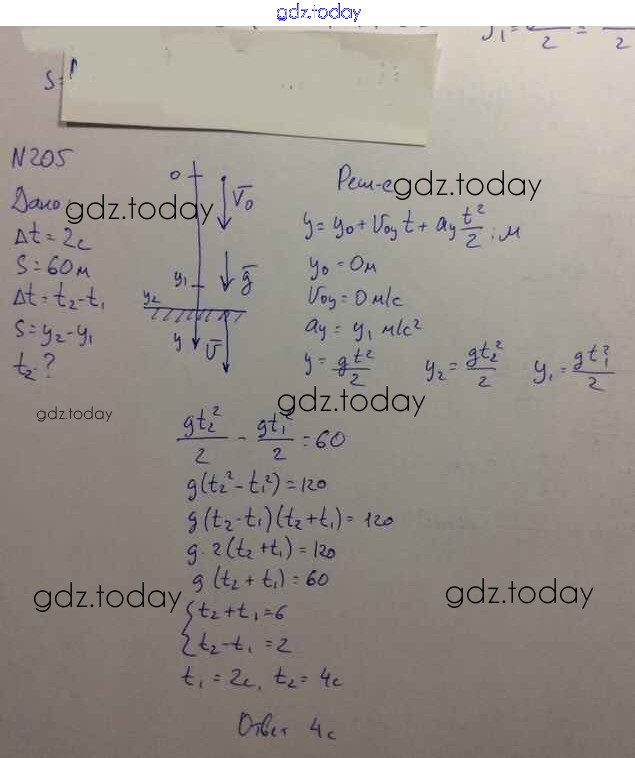 gdz.today
y₁ = 2 = 2
S =
N205
Дано
Δt = 2с
S = 60м
Δt = t₂ - t₁
S = y₂ - y₁
t₂ - ?
0
V̄₀
y₁
ḡ
y₂
y
V̄
Реш-е
gdz.today
gdz.today
y = y₀ + V₀y t + ay t²/2 ; м
y₀ = 0м
V₀y = 0 м/с
ay = y₁ м/с²
y = gt²/2 y₂ = gt₂²/2 y₁ = gt₁²/2
gdz.today
gdz.today
gt₂²/2 - gt₁²/2 = 60
g(t₂² - t₁²) = 120
g(t₂ - t₁)(t₂ + t₁) = 120
g · 2(t₂ + t₁) = 120
g(t₂ + t₁) = 60
gdz.today
gdz.today
{t₂ + t₁ = 6
{t₂ - t₁ = 2
t₁ = 2с, t₂ = 4с
Ответ 4с